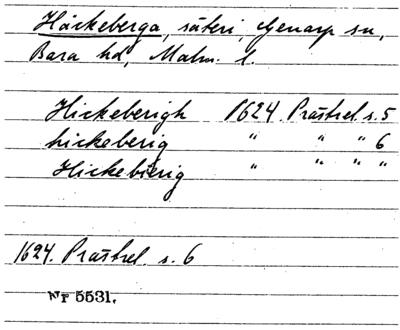 Häckeberga, säteri, Genarp sn,
Bara hd, Malm. l.
Hickeberigh 1624 Prästrel. s. 5
hickeberig " " " 6
Hickebierig " " " "
1624. Prästrel. s. 6
Nr 5531.